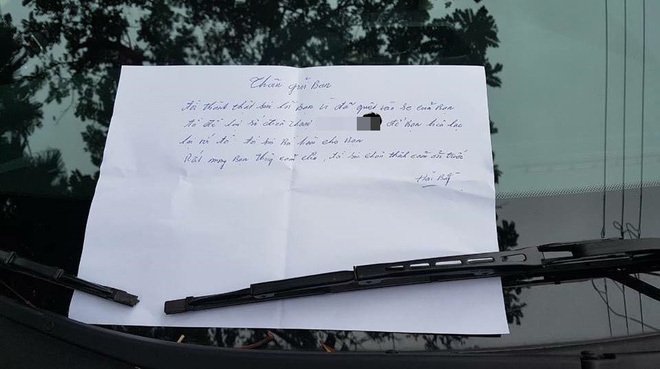 Thân gửi Bạn
tôi thành thật xin lỗi Bạn vì đã quệt vào xe của Bạn
tôi để lại số điện thoại để Bạn liên lạc
lại với tôi tôi xin
Rất mong Bạn thông cảm cho, tôi xin chân thành cảm ơn trước